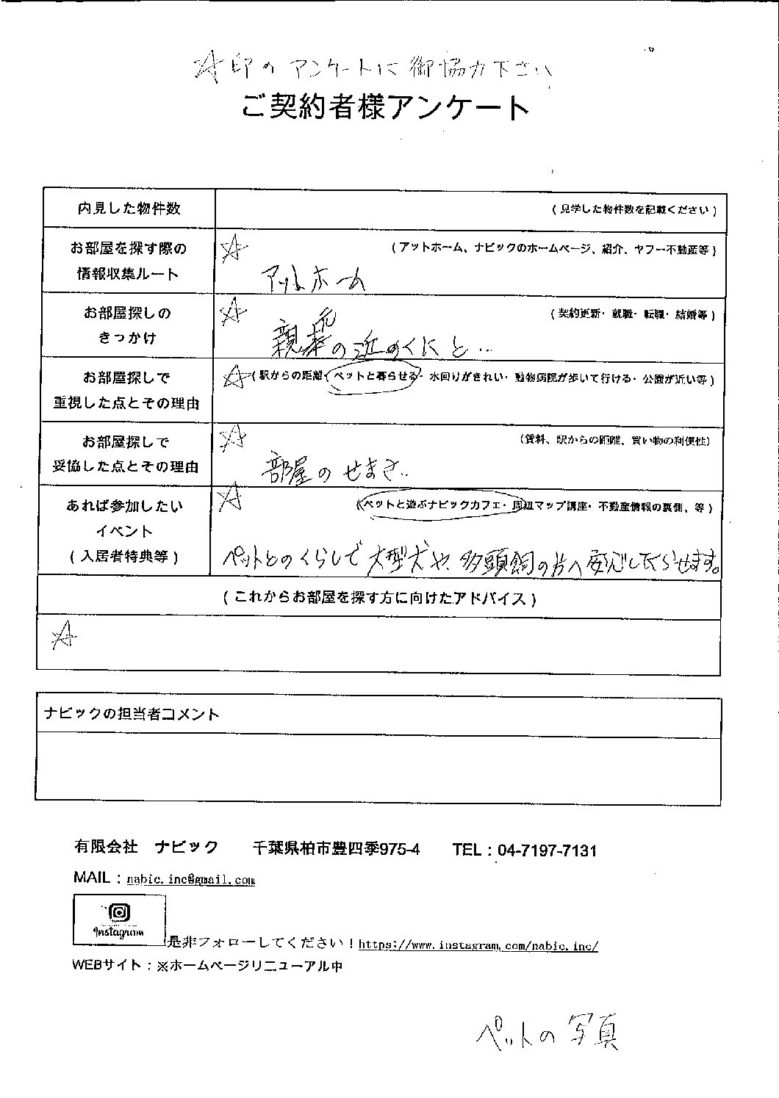 ☆印の アンケートに 御協力下さい
ご契約者様アンケート
内見した物件数
(見学した物件数を記載ください)
お部屋を探す際の
情報収集ルート
☆
(アットホーム、ナビックのホームページ、紹介、ヤフー不動産等)
アットホーム
お部屋探しの
きっかけ
☆
(契約更新・就職・転職・結婚等)
親元の近くにと…
お部屋探しで
重視した点とその理由
☆(駅からの距離・ペットと暮らせる・水回りがきれい・動物病院が歩いて行ける・公園が近い等)
お部屋探しで
妥協した点とその理由
☆
(賃料、駅からの距離、買い物の利便性)
部屋のせまさ..
あれば参加したい
イベント
(入居者特典等)
☆
(ペットと遊ぶナビックカフェ・周辺マップ講座・不動産情報の裏側、等)
ペットとのくらしで大型犬や、多頭飼の方へ安心してくらせます。
(これからお部屋を探す方に向けたアドバイス)
☆
ナビックの担当者コメント
有限会社 ナビック 千葉県柏市豊四季975-4 TEL:04-7197-7131
MAIL:nabic.inc@gmail.com
Instagram
是非フォローしてください!https://www.instagram.com/nabic.inc/
WEBサイト:※ホームページリニューアル中
ペットの写真